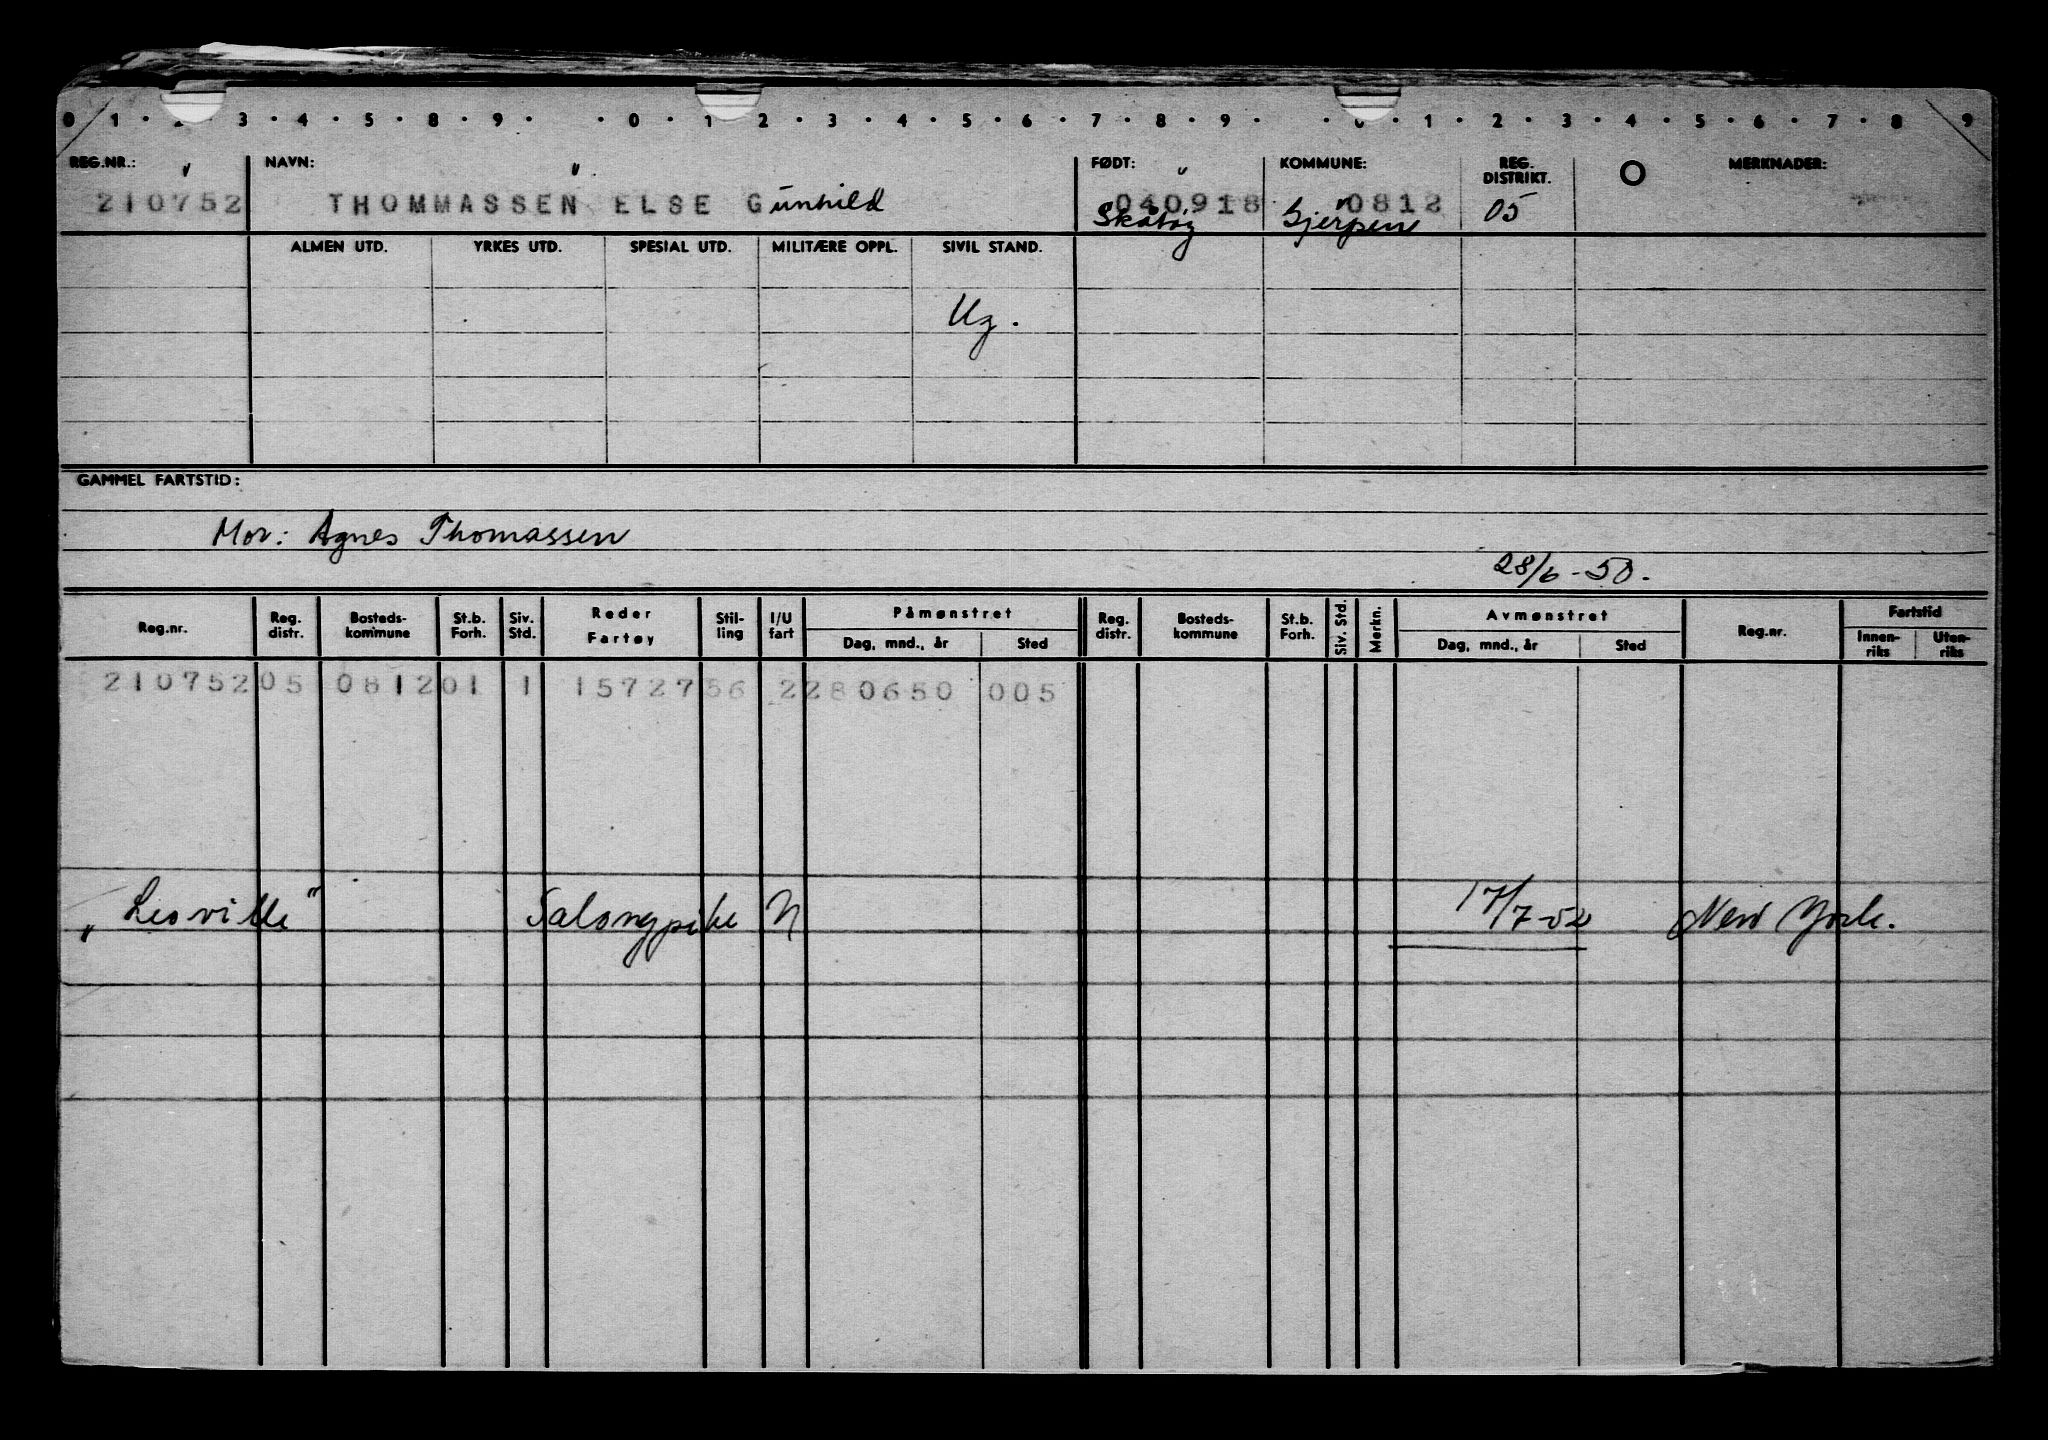 0 · 1 · 2 · 3 · 4 · 5 · 8 · 9 · · 0 · 1 · 2 · 3 · 4 · 5 · 6 · 7 · 8 · 9 · · 0 · 1 · 2 · 3 · 4 · 5 · 6 · 7 · 8 · 9
REG.NR.: NAVN: FØDT: KOMMUNE: REG. DISTRIKT. MERKNADER:
210752 THOMMASSEN ELSE Gunhild 040918 0812 05
Skåtøy Gjerpen
ALMEN UTD. YRKES UTD. SPESIAL UTD. MILITÆRE OPPL. SIVIL STAND.
Ug.
GAMMEL FARTSTID:
Mor: Agnes Thomassen
28/6-50.
Reg.nr. Reg. distr. Bosteds-kommune St.b. Forh. Siv. Std. Reder Fartøy Stil-ling I/U fart Påmønstret Dag, mnd., år Sted Reg. distr. Bosteds-kommune St.b. Forh. Siv. Std. Merkn. Avmønstret Dag, mnd., år Sted Reg.nr. Fartstid Innen-riks Uten-riks
210752 05 0812 01 1 15727 56 2 280650 005
"Leoville" Salongpike U 17/7-52 New York.